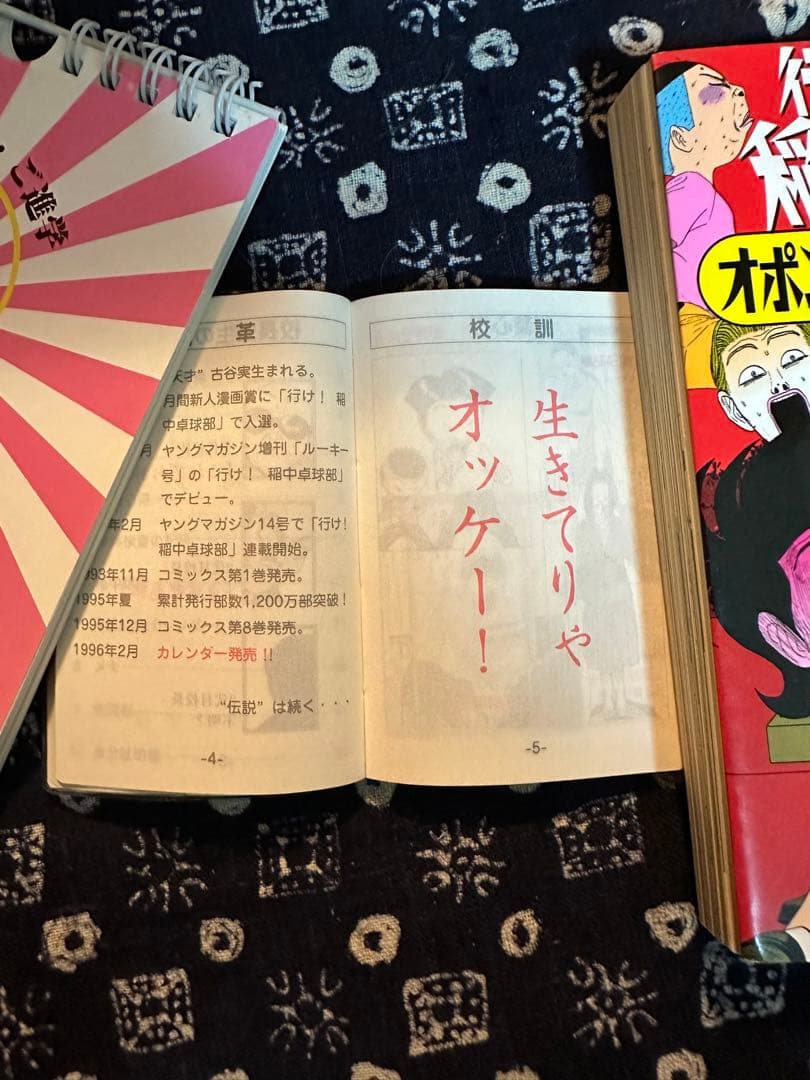 ご進学
革
天才" 古谷実生まれる。
月間新人漫画賞に「行け! 稲
中卓球部」で入選。
月 ヤングマガジン増刊「ルーキー
号」の「行け! 稲中卓球部」
でデビュー。
年2月 ヤングマガジン14号で「行け!
稲中卓球部」連載開始。
993年11月 コミックス第1巻発売。
1995年夏 累計発行部数1,200万部突破!
1995年12月 コミックス第8巻発売。
1996年2月 カレンダー発売!!
"伝説"は続く・・・
-4-
校訓
生きてりゃ
オッケー!
-5-
行
稲
オポ